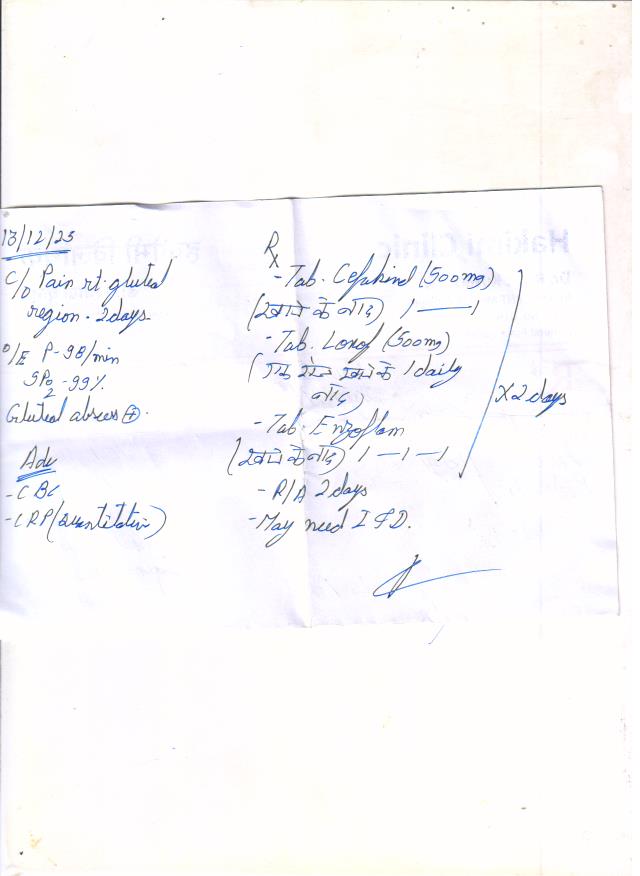 13/12/23
C/O Pain rt. gluteal
region - 2days
O/E P-98/min
SPO2 -99%
Gluteal abscess (+).
Adv
- CBC
- CRP (Quantitative)
Rx
- Tab. Cefakind (500mg)
(खाने के बाद) 1 — 1
- Tab. Loxof (500mg)
(खाने के 1 daily
बाद)
X 2 days
- Tab. Enzoflam
(खाने के बाद) 1 — 1 — 1
- R/A 2 days
- May need I & D.